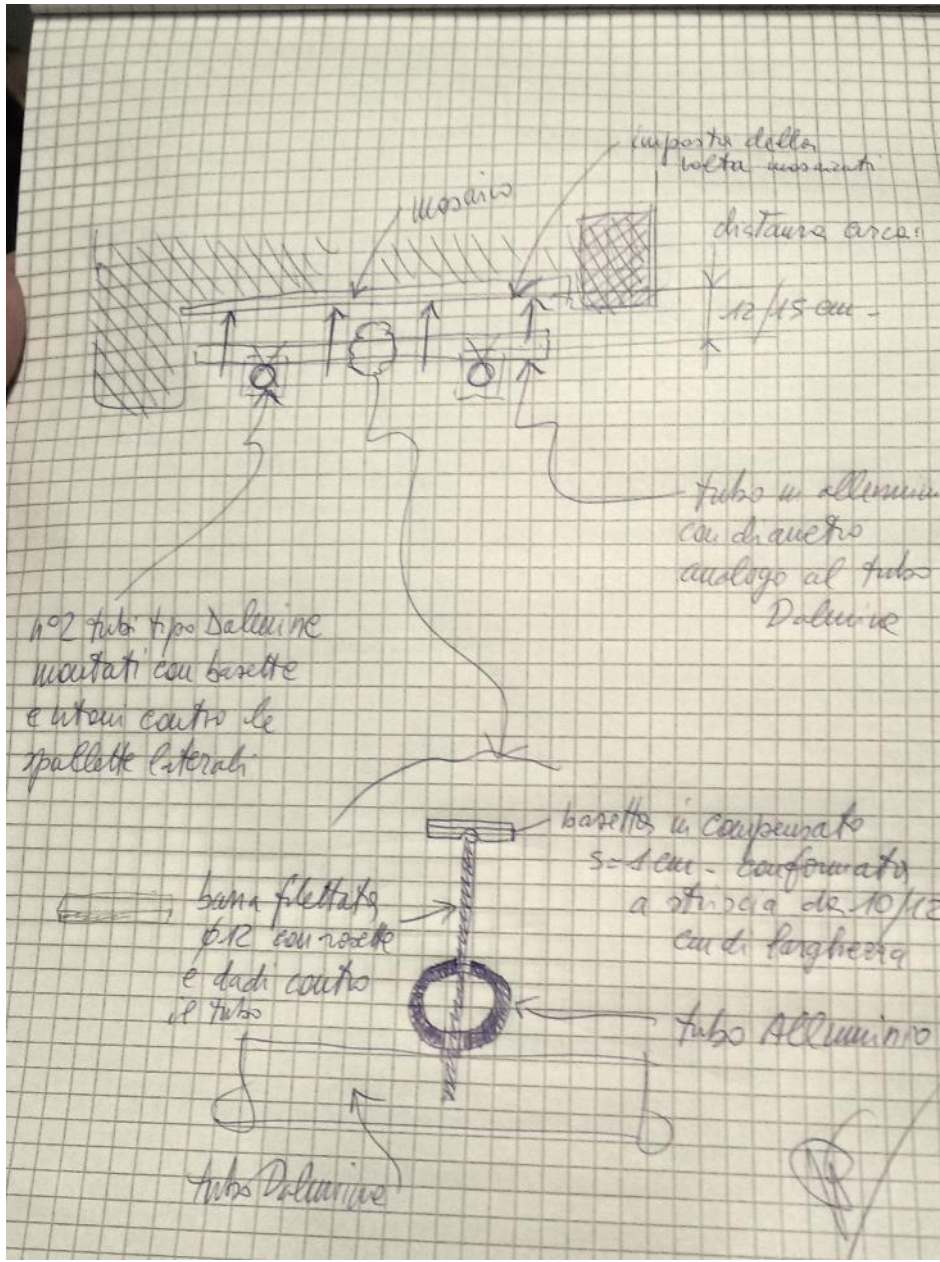 imposta della
volta
mosaico
distanza circa:
12/15 cm -
tubo in allumin
con diametro
analogo al tubo
Dalmine
n°2 tubi tipo Dalmine
montati con basette
contro le
spallette laterali
basetta in compensato
s=1 cm - conformata
a striscia da 10/12
cm di larghezza
barra filettata
φ12 con rosette
e dadi contro
il tubo
tubo Alluminio
tubo Dalmine